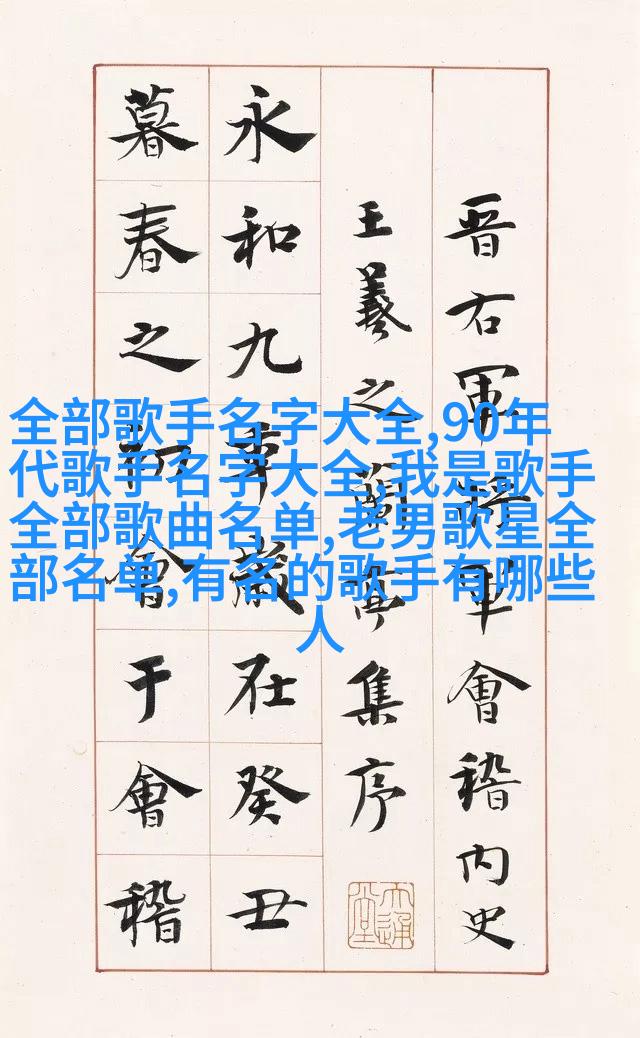 晋右軍将軍會稽内史
王羲之蘭亭集序
永和九年歲在癸丑
暮春之初會于會稽
全部歌手名字大全,90年
代歌手名字大全,我是歌手
全部歌曲名单,老男歌星全
部名单,有名的歌手有哪些
人